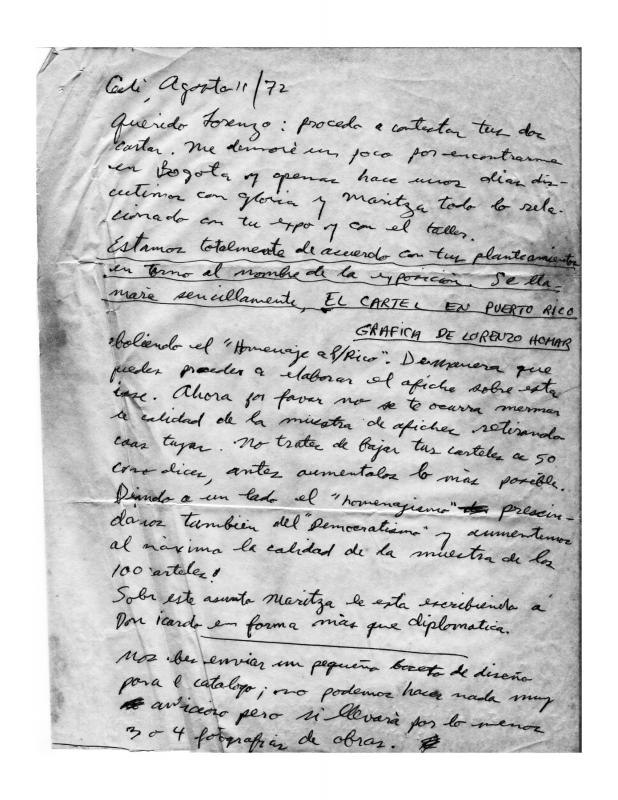 Cali, Agosto 11/72
Querido Lorenzo: procedo a contestar tus dos
cartas. Me demoré un poco por encontrarme
en Bogota y apenas hace unos dias dis-
cutimos con gloria y Maritza todo lo rela-
cionado con tu expo y con el taller.
Estamos totalmente de acuerdo con tus planteamientos
en torno al nombre de la exposición. Se lla-
mará sencillamente, EL CARTEL EN PUERTO RICO
GRAFICA DE LORENZO HOMAR
boliendo el "Homenaje a P/Rico". De manera que
puedes proceder a elaborar el afiche sobre esta
base. Ahora por favor no se te ocurra mermar
le calidad de la muestra de afiches retirando
cosas tuyas. No trates de bajar tus carteles a 50
como dices, antes aumentalos lo más posible.
Dando a un lado el "homenajismo" prescin-
damos también del "Democratismo" y aumentemos
al máxima la calidad de la muestra de los
100 arteles!
Sobr este asunto Maritza le esta escribiendo a
Don icardo en forma más que diplomatica.
Nos bes enviar un pequeño boceto de diseño
para l catalogo; no podemos hacer nada muy
pero si llevará por lo menos
3 o 4 fotografias de obras.